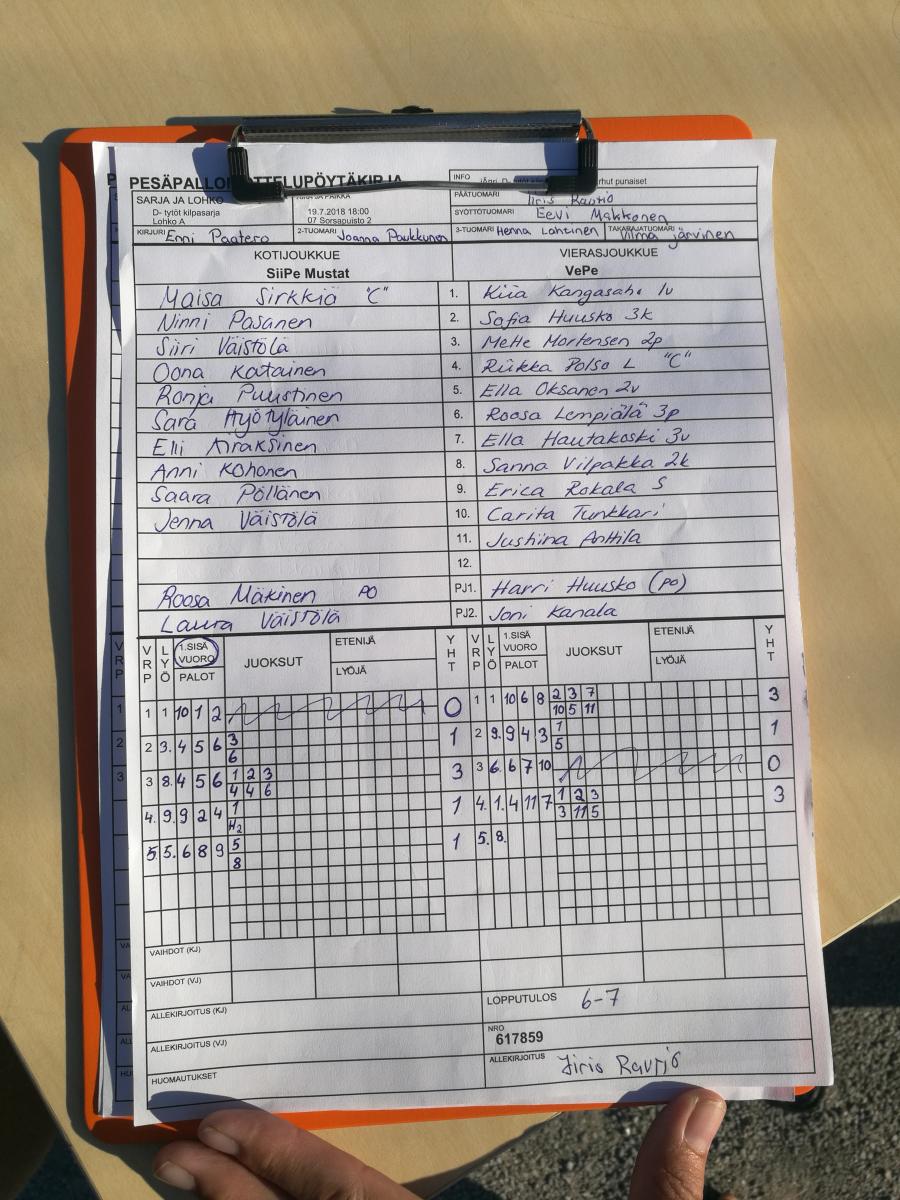 PESÄPALLO
TELUPÖYTÄKIRJA
INFO
D- tytöt
rhut punaiset
SARJA JA LOHKO
D- tytöt kilpasarja
Lohko A
19.7.2018 18:00
07 Sorsapuisto 2
PÄÄTUOMARI Iiris Raurio
SYÖTTÖTUOMARI Eevi Makkonen
KIRJURI Enni Paatero
2-TUOMARI Joanna Paukkunen
3-TUOMARI Henna Lahtinen
TAKARAJATUOMARI Vilma järvinen
KOTIJOUKKUE VIERASJOUKKUE
SiiPe Mustat VePe
Maisa Sirkkiä "C" 1. Kiia Kangasaho 1v
Ninni Pasanen 2. Sofia Huusko 3k
Siiri Väistölä 3. Mette Mortensen 2p
Oona Katainen 4. Riikka Polso L "C"
Ronja Puustinen 5. Ella Oksanen 2v
Sara Hyötyläinen 6. Roosa Lempiälä 3p
Elli Airaksinen 7. Ella Hautakoski 3v
Anni Kohonen 8. Sanna Vilpakka 2k
Saara Pöllänen 9. Erica Rokala S
Jenna Väistölä 10. Carita Tunkkari
11. Justiina Anttila
12.
Roosa Mäkinen PO PJ1. Harri Huusko (PO)
Laura Väistölä PJ2. Joni Kanala
VRP LYÖ 1.SISÄ VUORO PALOT JUOKSUT ETENIJÄ LYÖJÄ YHT VRP LYÖ 1.SISÄ VUORO PALOT JUOKSUT ETENIJÄ LYÖJÄ YHT
1 1 10 1 2 0 1 1 10 6 8 2 3 7 3
10 5 11
2 3. 4 5 6 3 1 2 9. 9 4 3 1 1
6 5
3 8. 4 5 6 1 2 3 3 3 6. 6 7 10 0
4 4 6
4. 9. 9 2 4 1 1 4. 1. 4 11 7 1 2 3 3
H2 3 11 5
5 5. 6 8 9 5 1 5. 8.
8
VAIHDOT (KJ)
VAIHDOT (VJ)
ALLEKIRJOITUS (KJ)
LOPPUTULOS 6-7
ALLEKIRJOITUS (VJ)
NRO
617859
HUOMAUTUKSET
ALLEKIRJOITUS Iiris Raurio